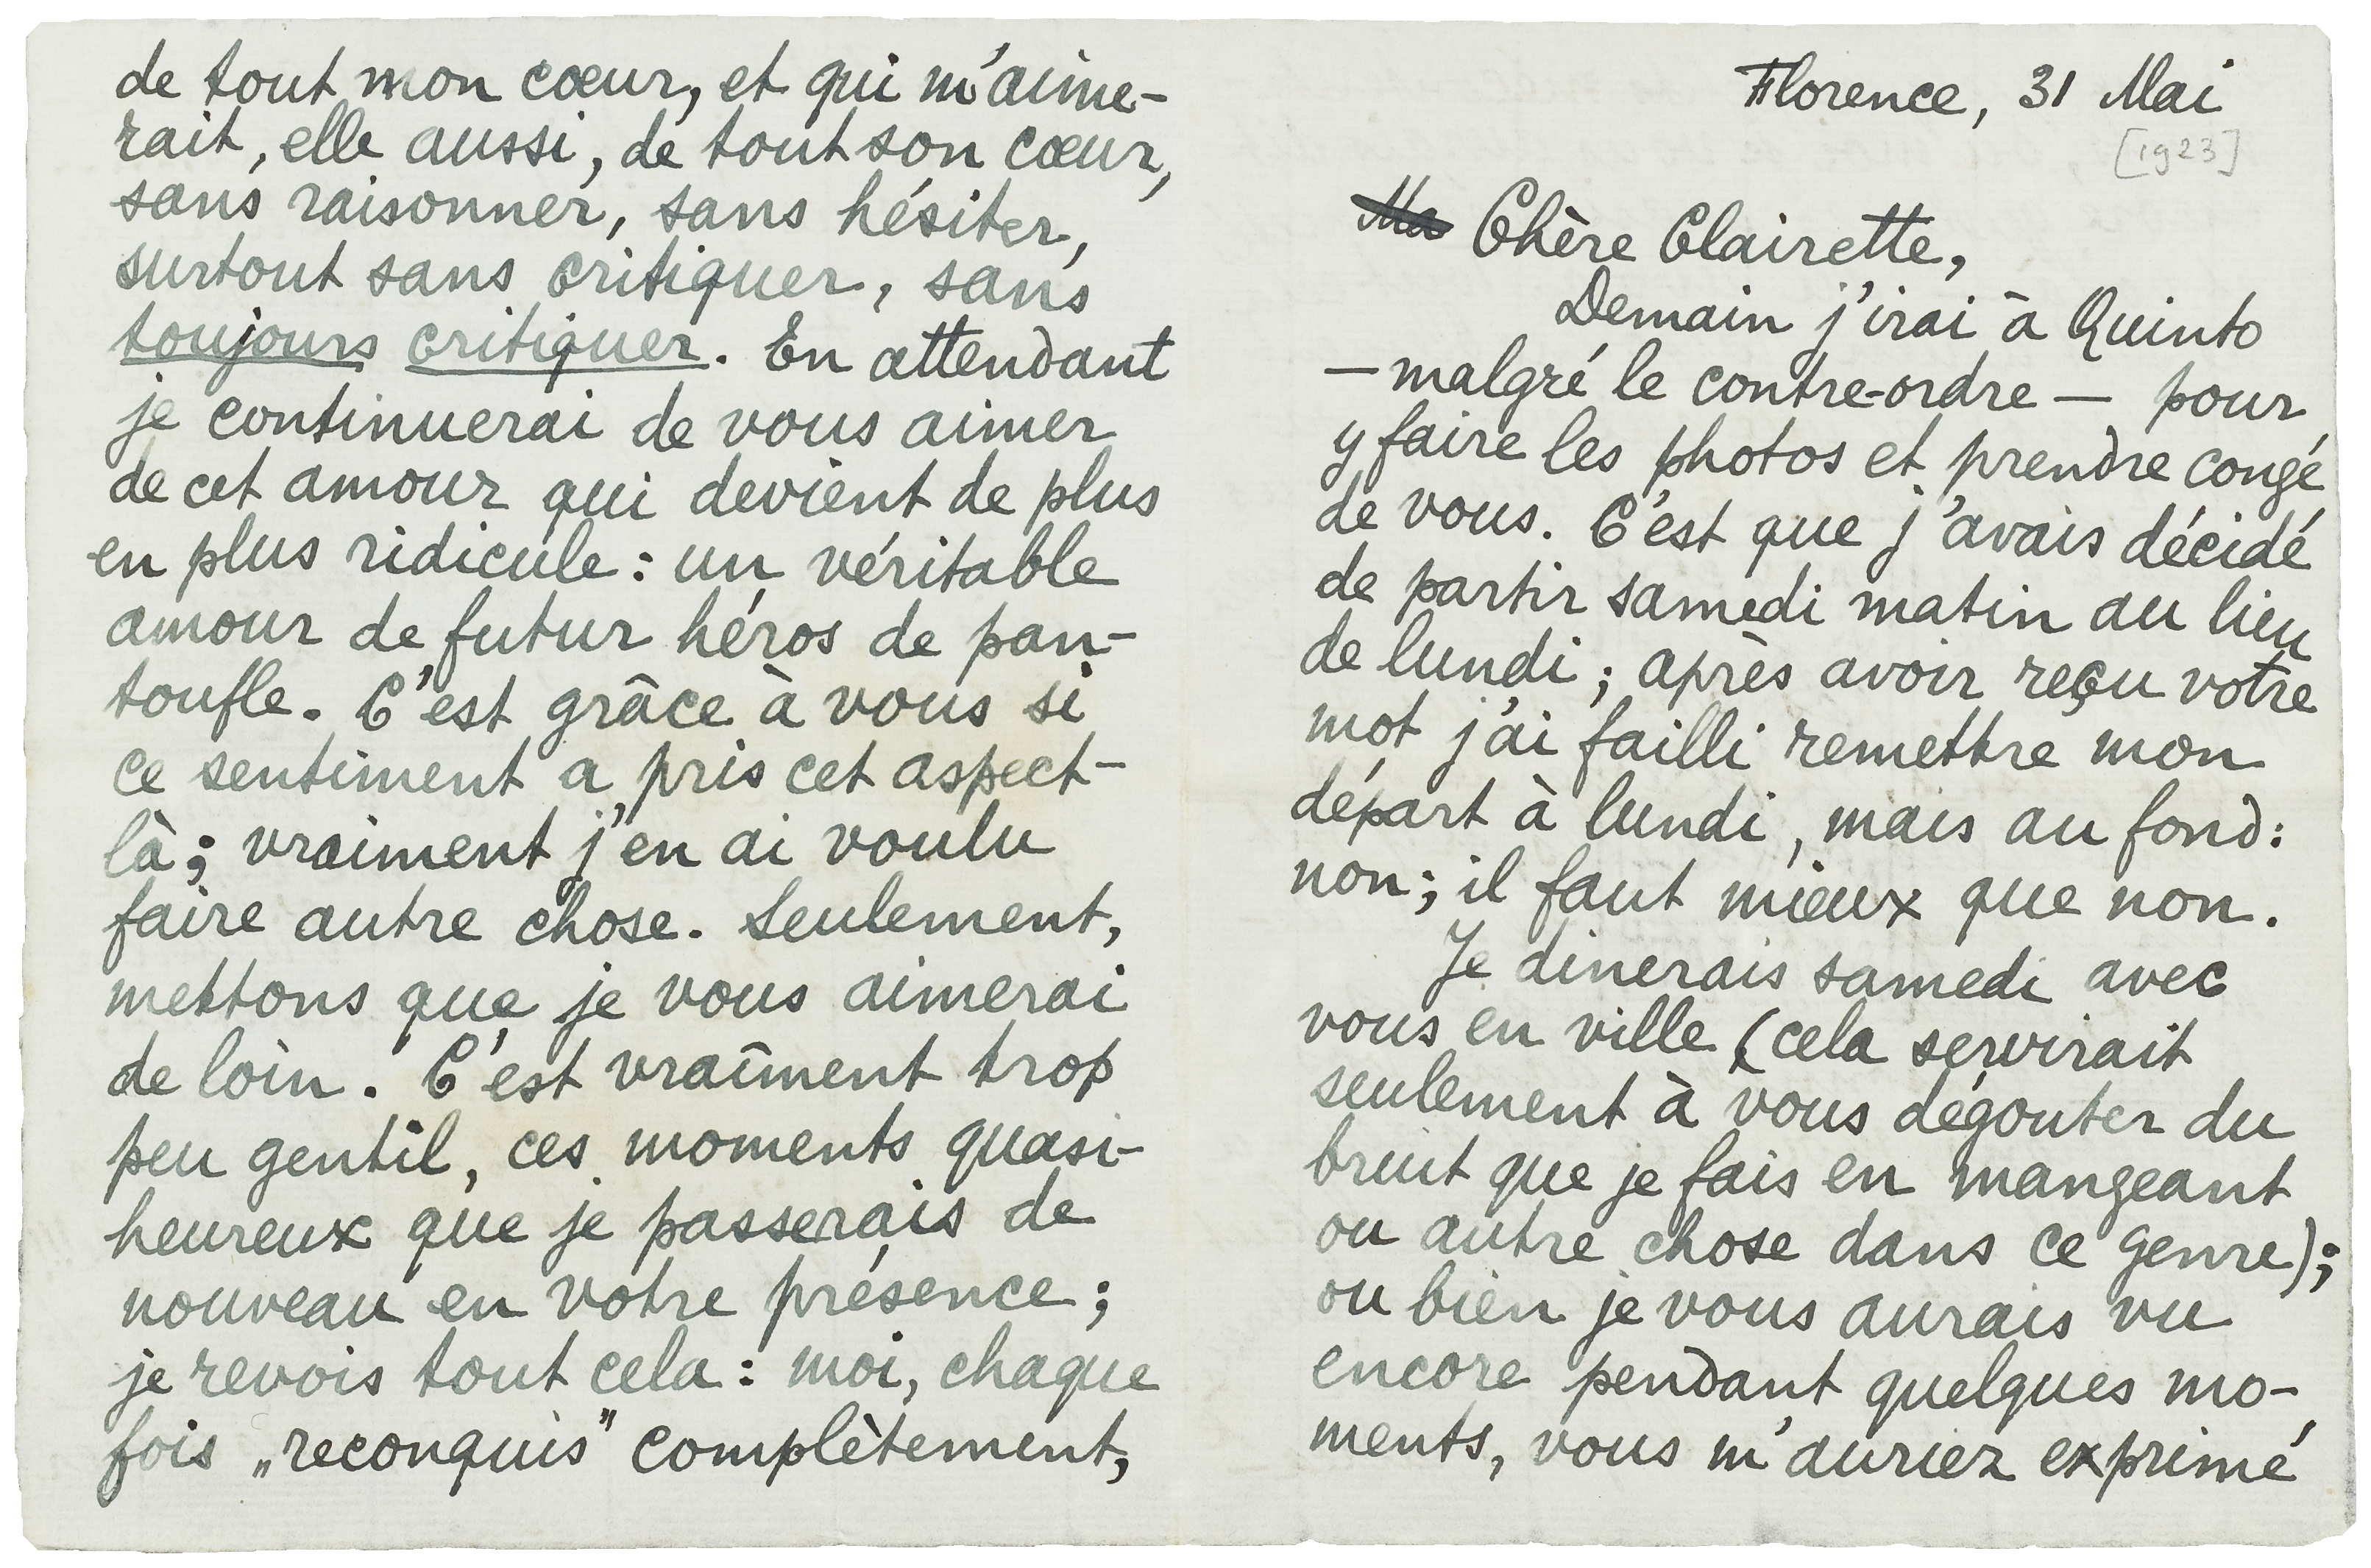 Florence, 31 Mai
[1923]
Ma Chère Clairette,
Demain j'irai à Quinto
— malgré le contre-ordre — pour
y faire les photos et prendre congé
de vous. C'est que j'avais décidé
de partir samedi matin au lieu
de lundi ; après avoir reçu votre
mot j'ai failli remettre mon
départ à lundi, mais au fond :
non ; il faut mieux que non.
Je dinerais samedi avec
vous en ville (cela servirait
seulement à vous dégouter du
bruit que je fais en mangeant
ou autre chose dans ce genre) ;
ou bien je vous aurais vu
encore pendant quelques mo-
ments, vous m'auriez exprimé
de tout mon cœur, et qui m'aime-
rait, elle aussi, de tout son cœur,
sans raisonner, sans hésiter,
surtout sans critiquer, sans
toujours critiquer. En attendant
je continuerai de vous aimer
de cet amour qui devient de plus
en plus ridicule : un véritable
amour de futur héros de pan-
toufle. C'est grâce à vous si
ce sentiment a pris cet aspect-
là ; vraiment j'en ai voulu
faire autre chose. Seulement,
mettons que je vous aimerai
de loin. C'est vraiment trop
peu gentil, ces moments quasi-
heureux que je passerais de
nouveau en votre présence ;
je revois tout cela : moi, chaque
fois „reconquis" complètement,